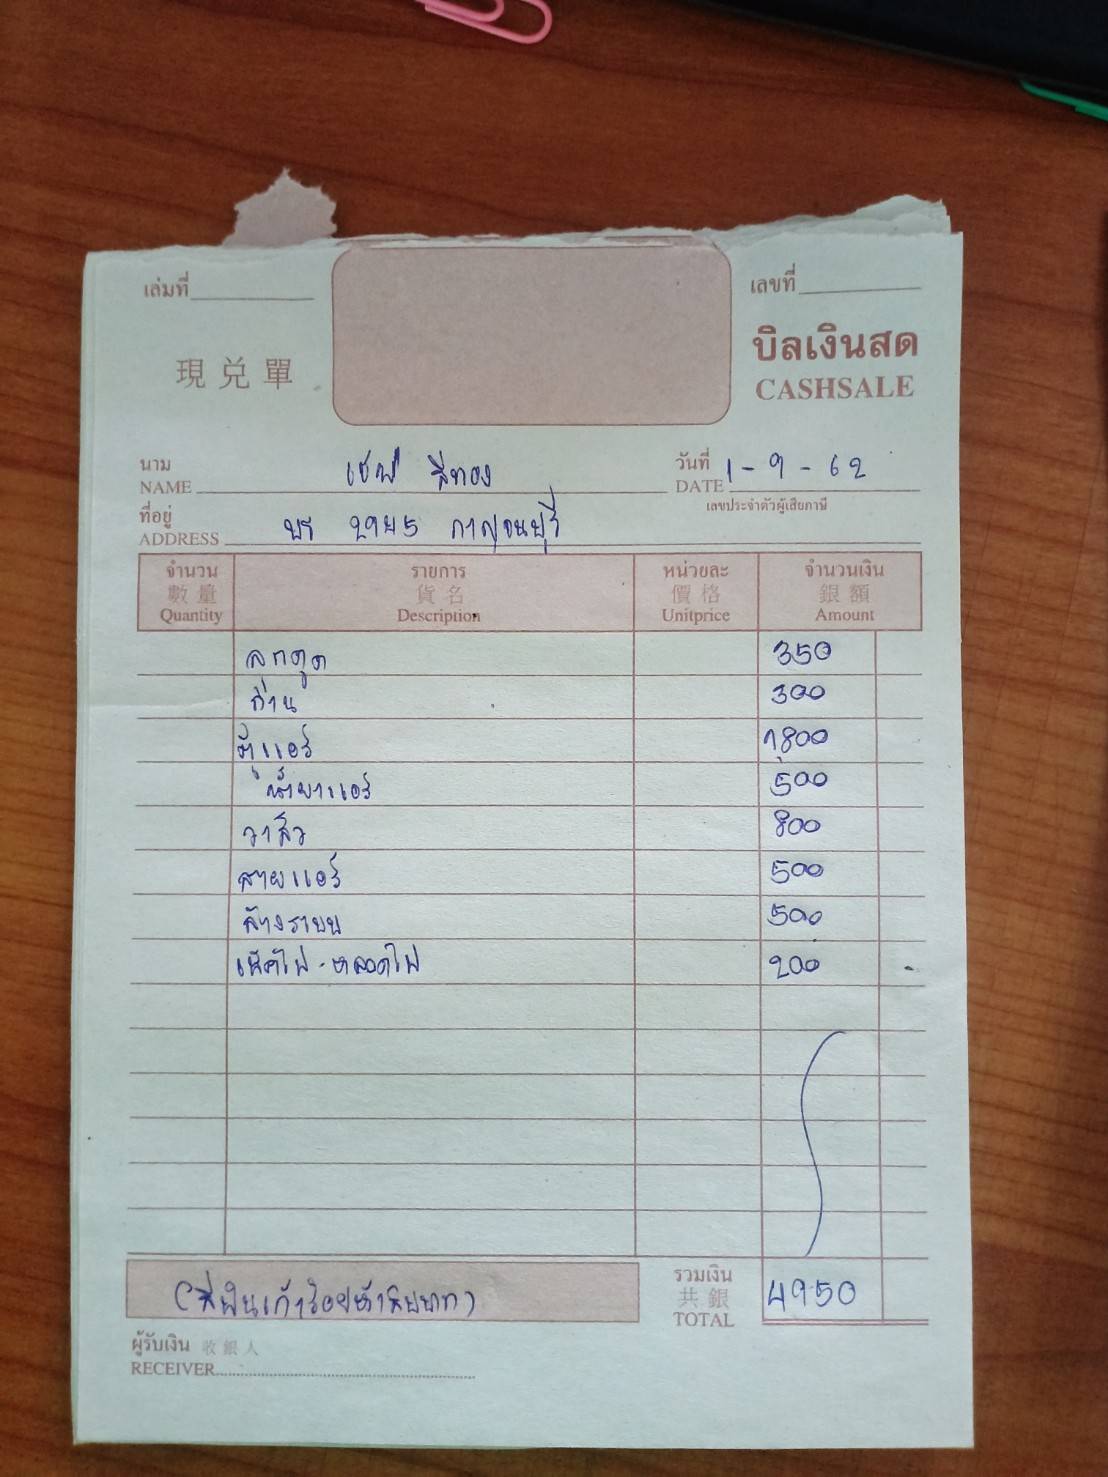 เล่มที่
เลขที่
現兌單
บิลเงินสด
CASHSALE
นาม
NAME
เชฟ สีทอง
วันที่ 1-9-62
DATE
เลขประจำตัวผู้เสียภาษี
ที่อยู่
ADDRESS
บร 2945 กาญจนบุรี
จำนวน รายการ หน่วยละ จำนวนเงิน
數量 貨名 價格 銀額
Quantity Description Unitprice Amount
ลูกดูด 350
ถ่าน 300
ตู้แอร์ 1,800
น้ำยาแอร์ 500
วาล์ว 800
สายแอร์ 500
ล้างระบบ 500
เช็คไฟ - หลอดไฟ 200 -
(สี่พันเก้าร้อยห้าสิบบาท)
รวมเงิน
共銀
TOTAL
4950
ผู้รับเงิน 收銀人
RECEIVER